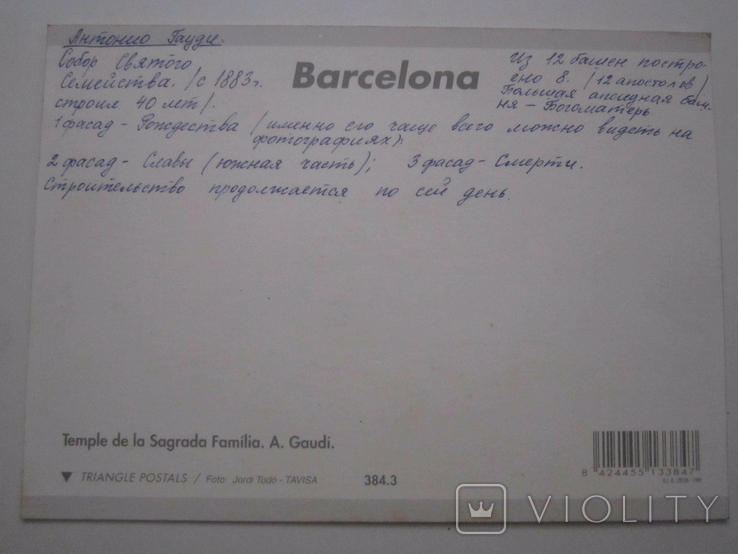 Антонио Гауди.
Собор Святого
Семейства. /с 1883г.
строил 40 лет/.
Barcelona
Из 12 башен постро-
ено 8. /12 апостолов/
Большая апсидная баш-
ня – Богоматерь
1 фасад – Рождества (именно его чаще всего можно видеть на
фотографиях).
2 фасад – Славы (южная часть); 3 фасад – Смерти.
Строительство продолжается по сей день.
Temple de la Sagrada Família. A. Gaudí.
▼ TRIANGLE POSTALS / Foto: Jordi Todó - TAVISA 384.3
8 424455 133847
VIOLITY